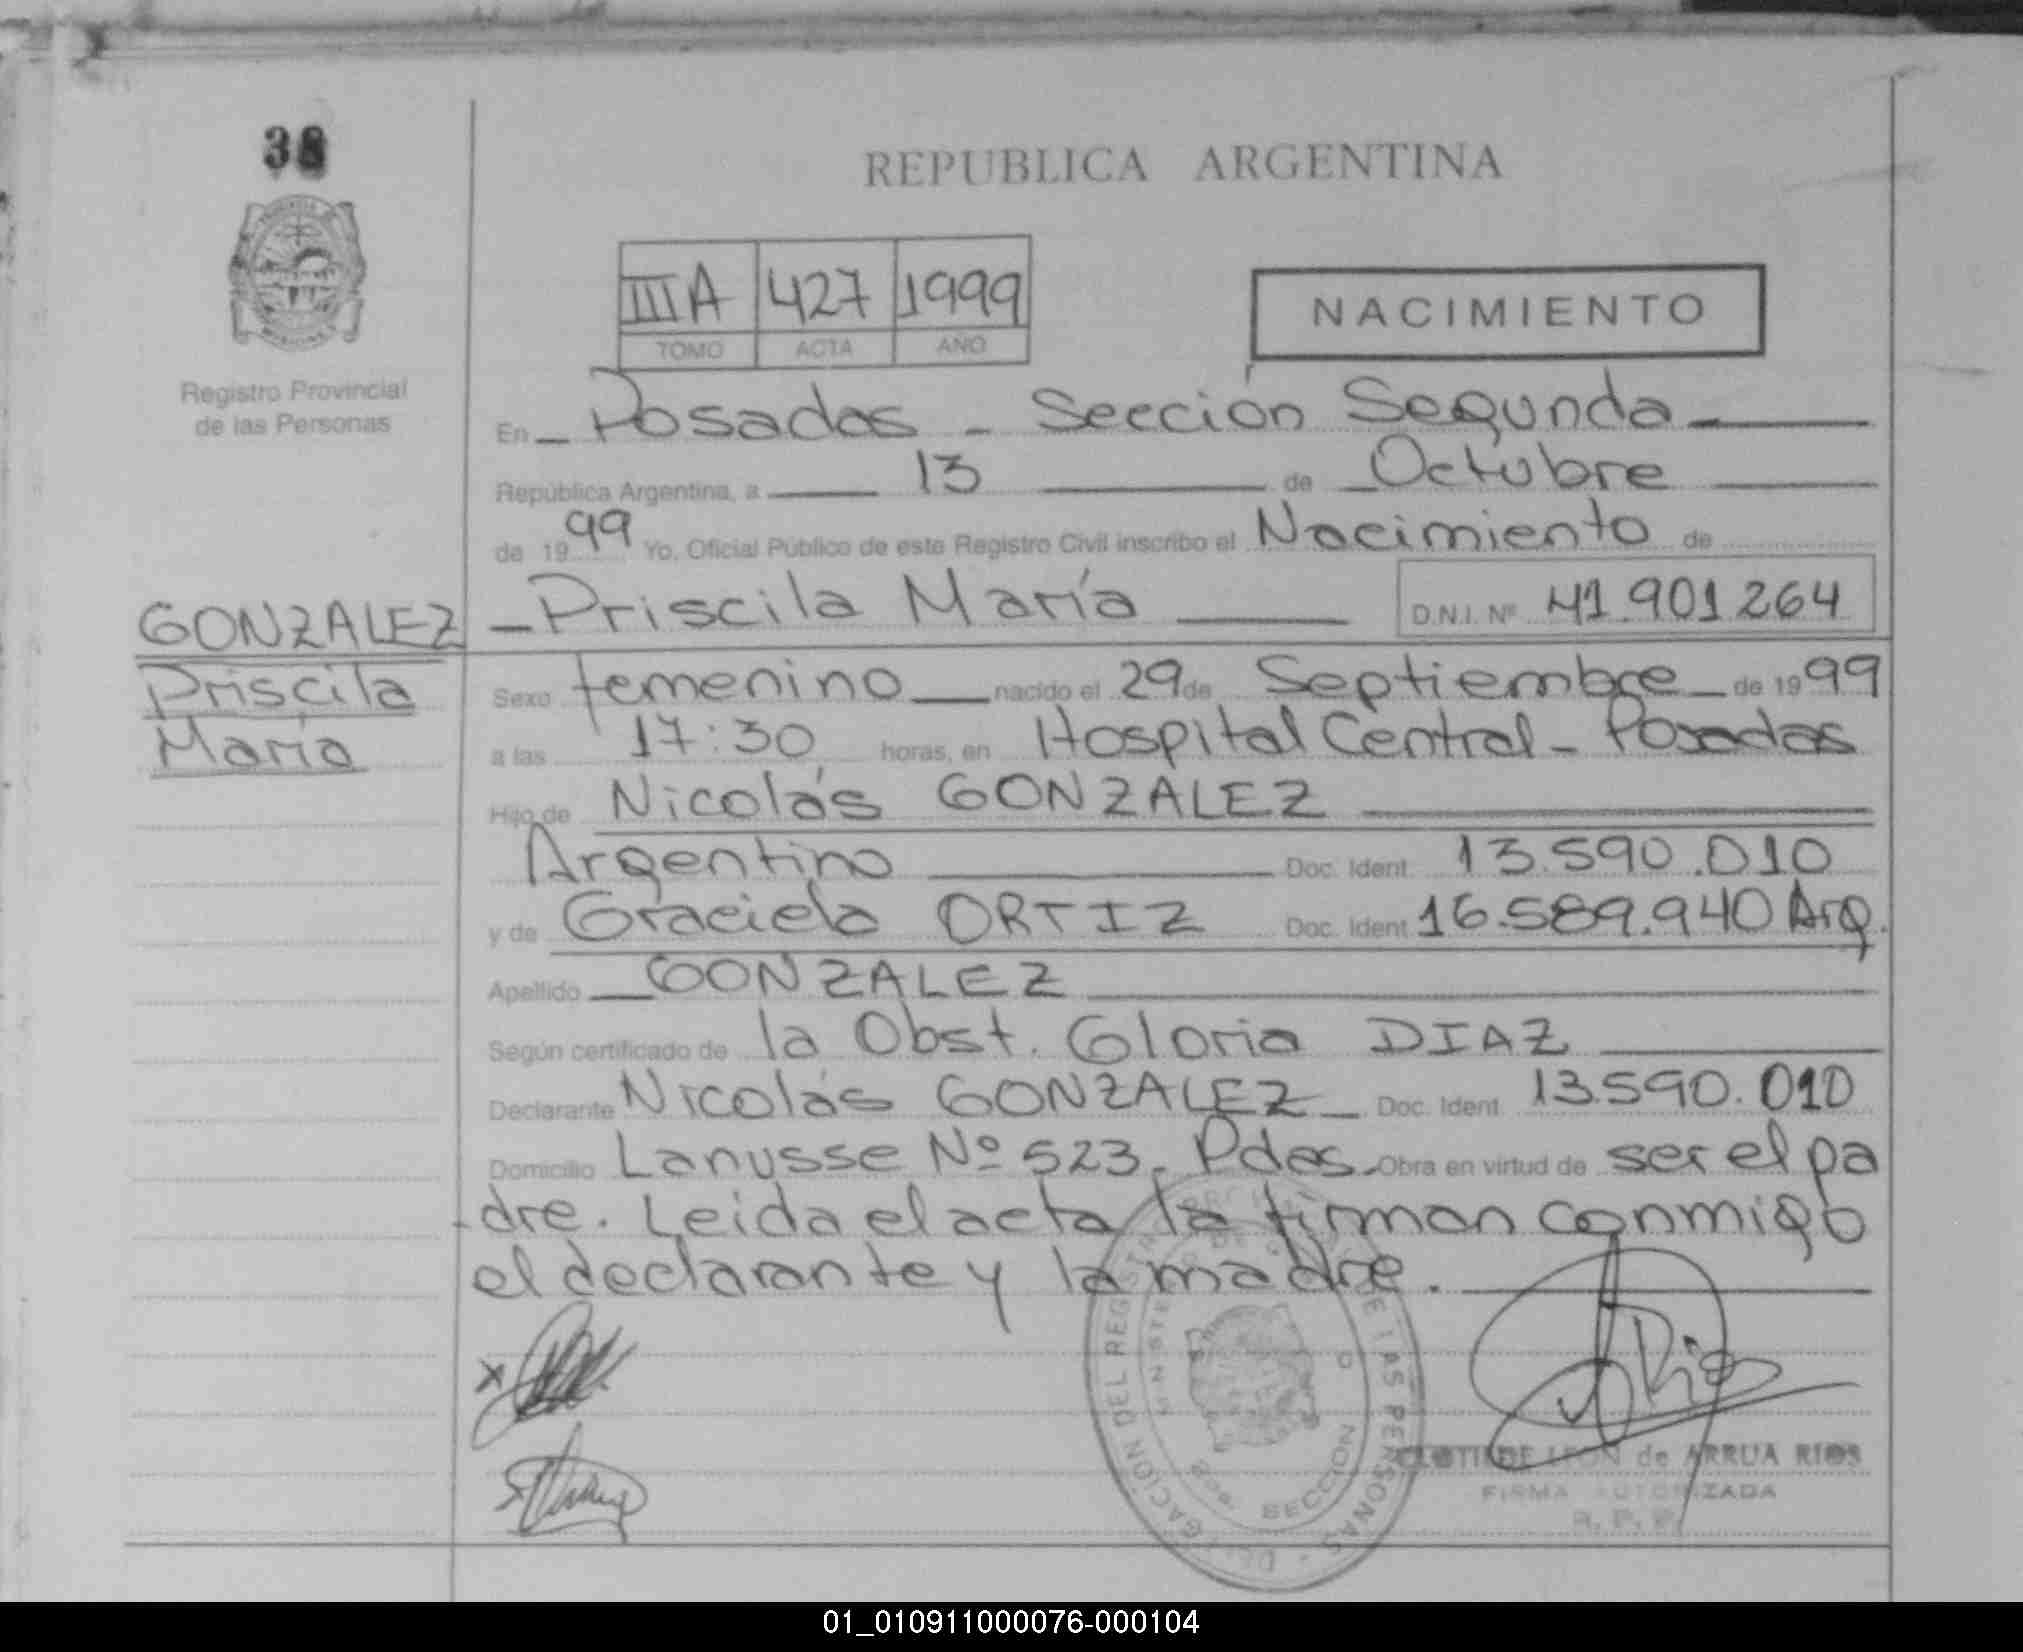 38
REPUBLICA ARGENTINA
IIIA 427 1999
TOMO ACTA AÑO
NACIMIENTO
Registro Provincial
de las Personas
En Posadas - Sección Segunda
República Argentina, a 13 de Octubre
de 1999 Yo, Oficial Público de este Registro Civil inscribo el Nacimiento de
Priscila María D.N.I. Nº 41.901.264
GONZALEZ
Priscila
María
Sexo femenino nacido el 29 de Septiembre de 1999
a las 17:30 horas, en Hospital Central - Posadas
Hijo de Nicolás GONZALEZ
Argentino Doc. Ident 13.590.010
y de Graciela ORTIZ Doc. Ident 16.589.940 Arg.
Apellido GONZALEZ
Según certificado de la Obst. Gloria DIAZ
Declarante Nicolás GONZALEZ Doc. Ident 13.590.010
Domicilio Lanusse Nº 523. Pdas. Obra en virtud de ser el pa
dre. Leida el acta la firman conmigo
el declarante y la madre.
DELEGACION DEL REGISTRO DE LAS PERSONAS
SECCION
CLOTILDE LEON de ARRUA RIOS
FIRMA AUTORIZADA
R. P. P.
01_010911000076-000104